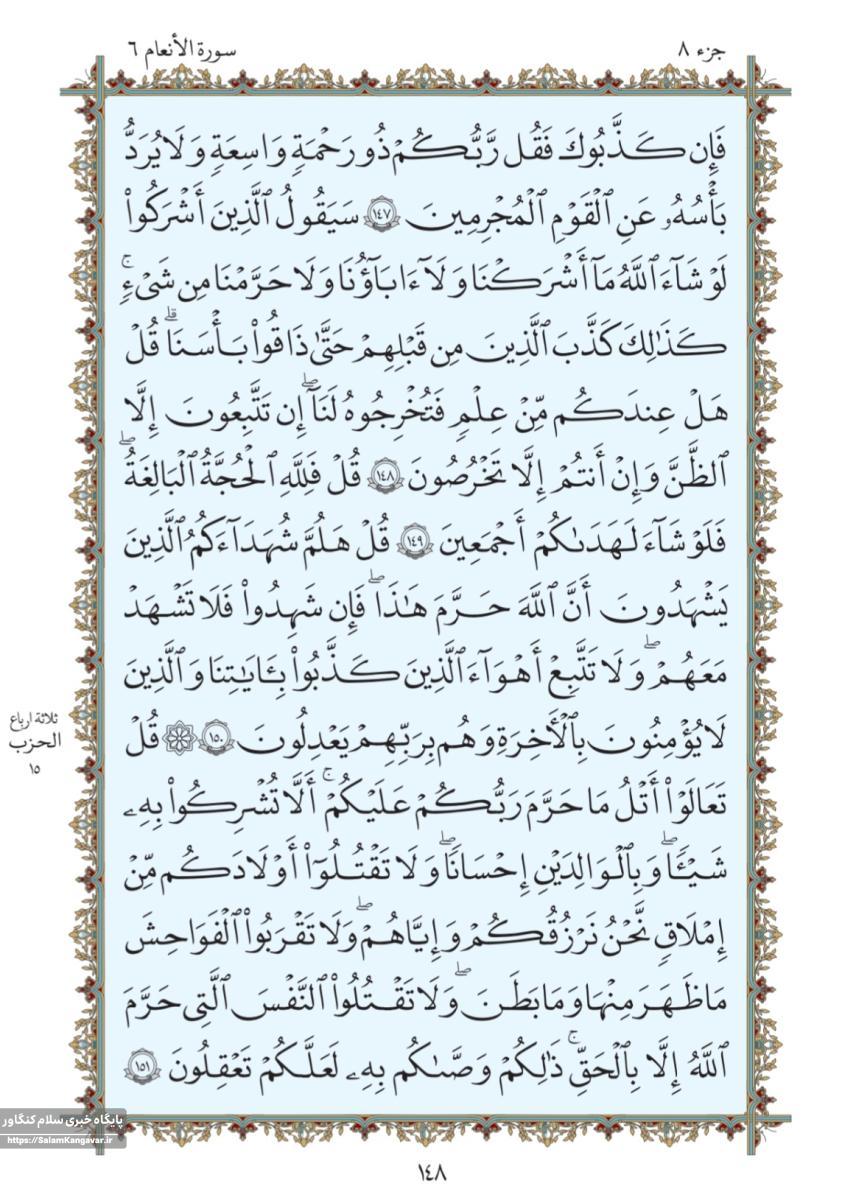 جزء ٨
سورة الأنعام ٦
فَإِن كَذَّبُوكَ فَقُل رَّبُّكُمْ ذُو رَحْمَةٍ وَاسِعَةٍ وَلَا يُرَدُّ
بَأْسُهُۥ عَنِ ٱلْقَوْمِ ٱلْمُجْرِمِينَ ١٤٧ سَيَقُولُ ٱلَّذِينَ أَشْرَكُوا۟
لَوْ شَآءَ ٱللَّهُ مَآ أَشْرَكْنَا وَلَآ ءَابَآؤُنَا وَلَا حَرَّمْنَا مِن شَىْءٍ ۚ
كَذَٰلِكَ كَذَّبَ ٱلَّذِينَ مِن قَبْلِهِمْ حَتَّىٰ ذَاقُوا۟ بَأْسَنَا ۗ قُلْ
هَلْ عِندَكُم مِّنْ عِلْمٍ فَتُخْرِجُوهُ لَنَآ ۖ إِن تَتَّبِعُونَ إِلَّا
ٱلظَّنَّ وَإِنْ أَنتُمْ إِلَّا تَخْرُصُونَ ١٤٨ قُلْ فَلِلَّهِ ٱلْحُجَّةُ ٱلْبَالِغَةُ ۖ
فَلَوْ شَآءَ لَهَدَىٰكُمْ أَجْمَعِينَ ١٤٩ قُلْ هَلُمَّ شُهَدَآءَكُمُ ٱلَّذِينَ
يَشْهَدُونَ أَنَّ ٱللَّهَ حَرَّمَ هَٰذَا ۖ فَإِن شَهِدُوا۟ فَلَا تَشْهَدْ
مَعَهُمْ ۖ وَلَا تَتَّبِعْ أَهْوَآءَ ٱلَّذِينَ كَذَّبُوا۟ بِـَٔايَٰتِنَا وَٱلَّذِينَ
لَا يُؤْمِنُونَ بِٱلْأَخِرَةِ وَهُم بِرَبِّهِمْ يَعْدِلُونَ ١٥٠ ۞ قُلْ
ثلاثة ارباع
الحزب
١٥
تَعَالَوْا۟ أَتْلُ مَا حَرَّمَ رَبُّكُمْ عَلَيْكُمْ ۚ أَلَّا تُشْرِكُوا۟ بِهِۦ
شَيْـًٔا ۖ وَبِٱلْوَٰلِدَيْنِ إِحْسَانًا ۖ وَلَا تَقْتُلُوٓا۟ أَوْلَادَكُم مِّنْ
إِمْلَاقٍ نَّحْنُ نَرْزُقُكُمْ وَإِيَّاهُمْ ۖ وَلَا تَقْرَبُوا۟ ٱلْفَوَاحِشَ
مَا ظَهَرَ مِنْهَا وَمَا بَطَنَ ۖ وَلَا تَقْتُلُوا۟ ٱلنَّفْسَ ٱلَّتِى حَرَّمَ
ٱللَّهُ إِلَّا بِٱلْحَقِّ ۚ ذَٰلِكُمْ وَصَّىٰكُم بِهِۦ لَعَلَّكُمْ تَعْقِلُونَ ١٥١
پایگاه خبری سلام کنگاور
https://SalamKangavar.ir
١٤٨